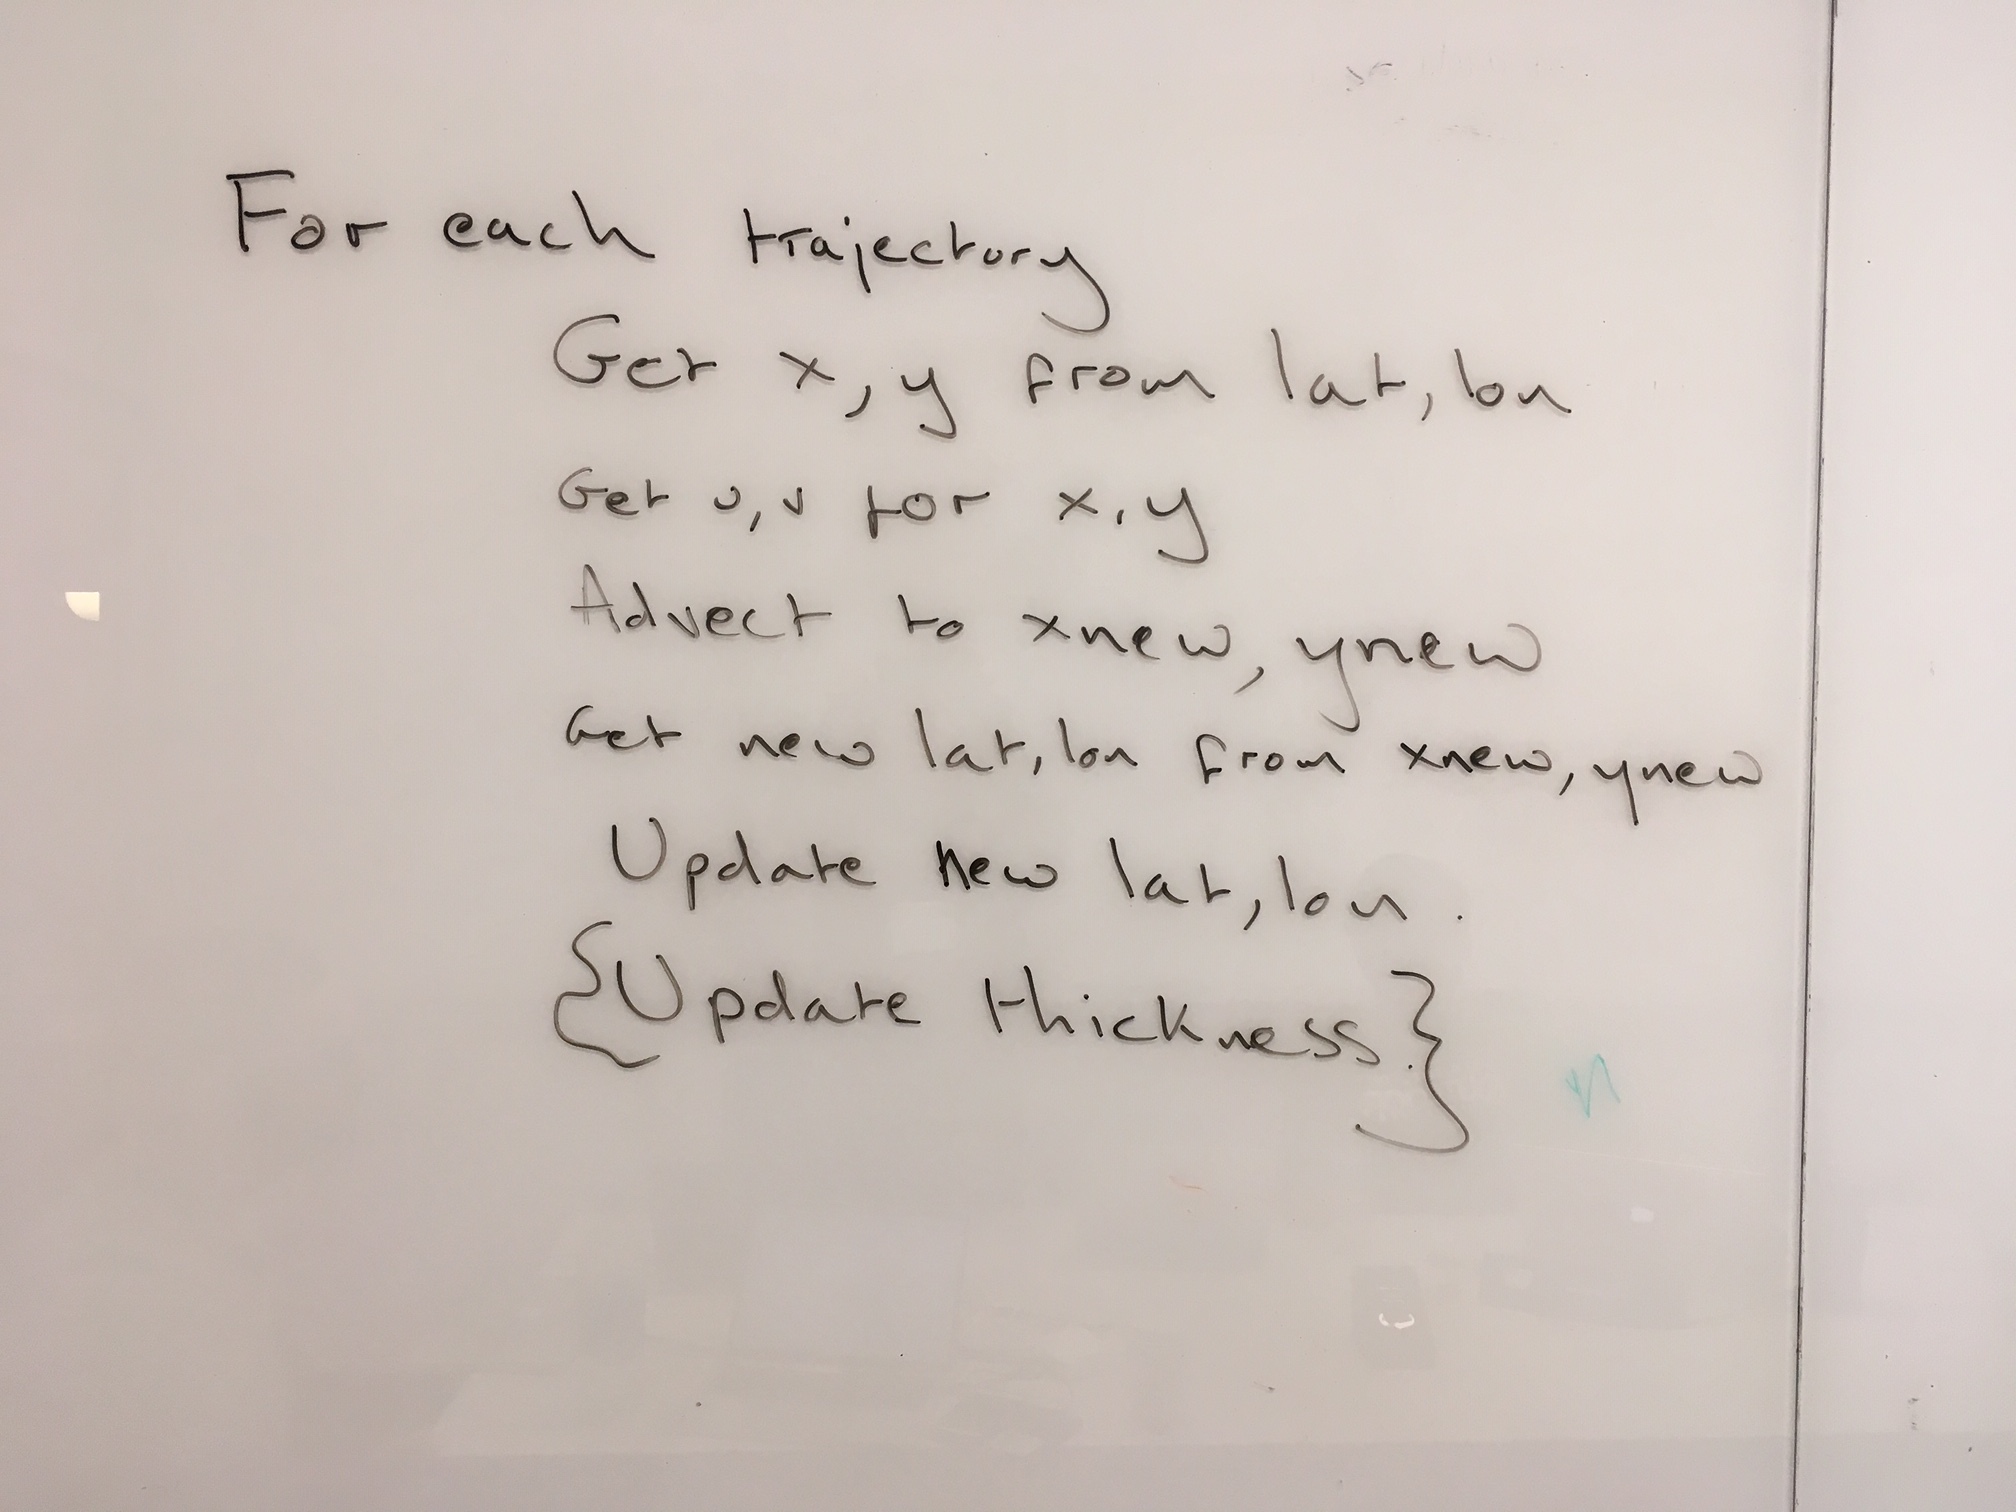 For each trajectory
Get x, y from lat, lon
Get u, v for x, y
Advect to xnew, ynew
Get new lat, lon from xnew, ynew
Update new lat, lon.
{Update thickness.}